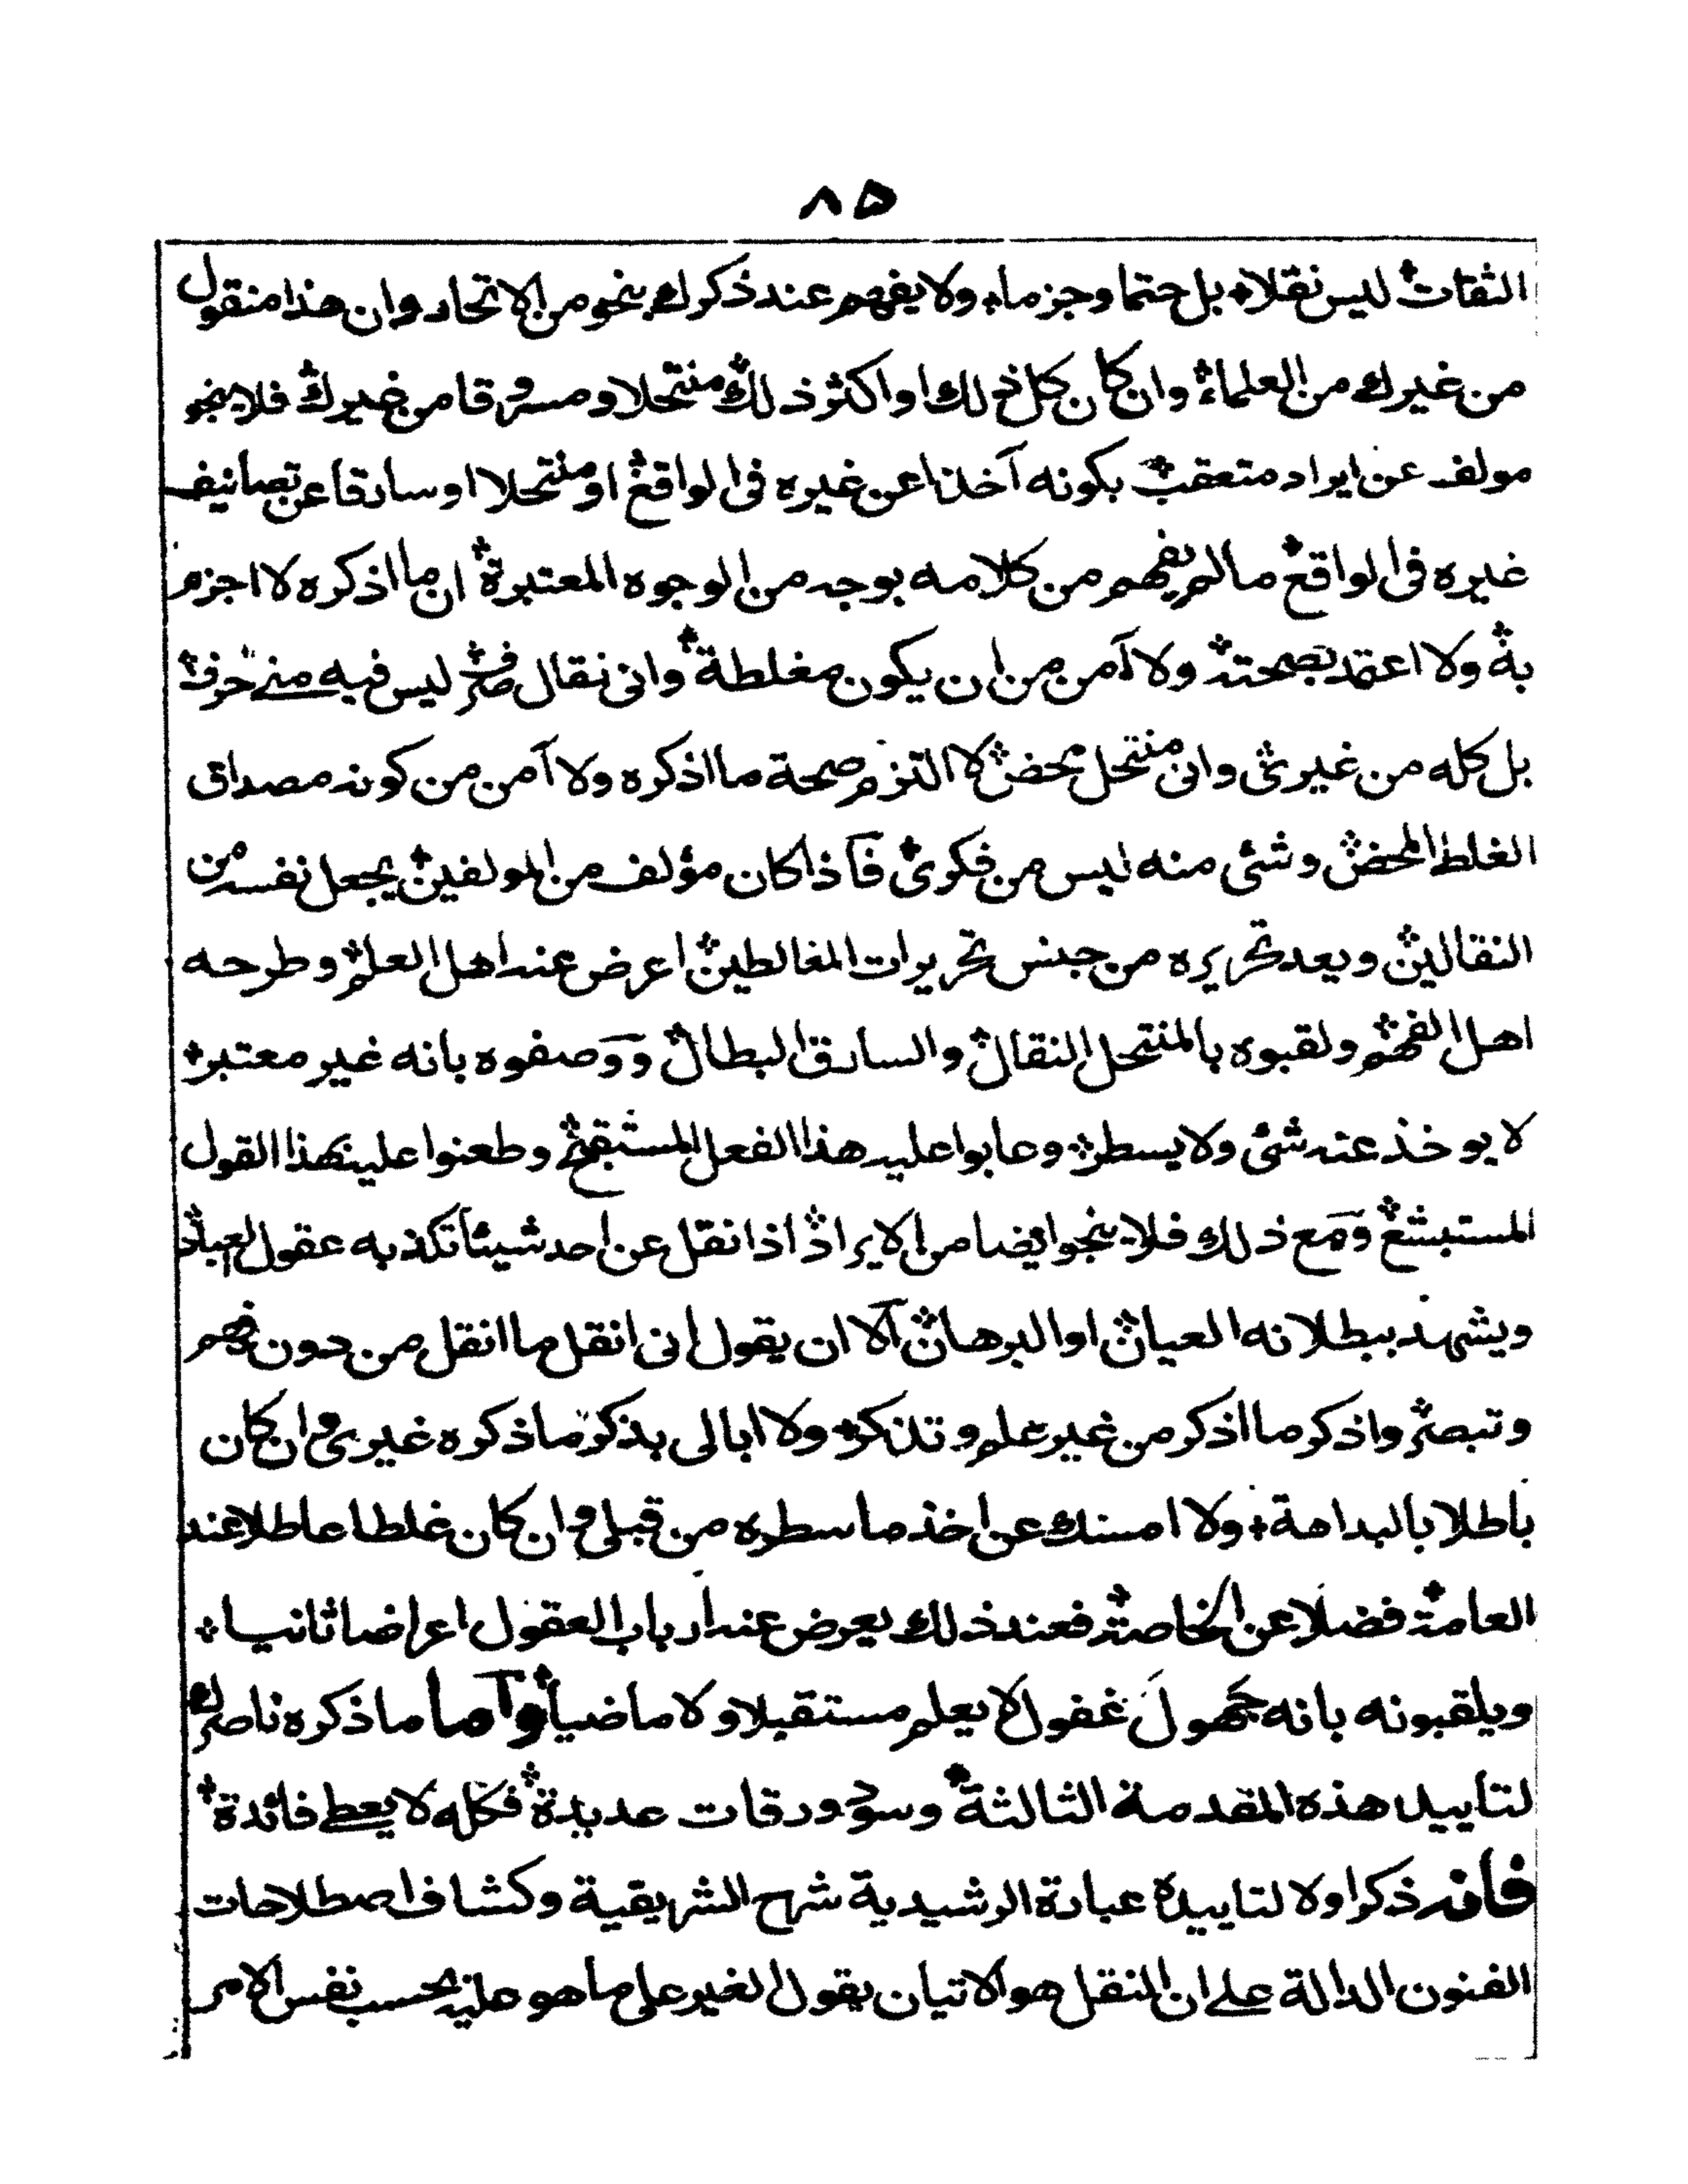 ٨٥
الثقات ليس نقلا بل حتما وجزما ولا يفهم عند ذكرك بنحو من الاتحاد وان هذا منقول
من غيرك من العلماء وان كان كل ذلك او اكثر ذلك منتحلا ومسروقا من غيرك فلا ينجو
مولف عن ايراد متعقب بكونه آخذا عن غيره فى الواقع او منتحلا او سارقا عن تصانيف
غيره فى الواقع ما لم يفهم من كلامه بوجه من الوجوه المعتبرة ان ما اذكره لا اجزم
به ولا اعتمد بصحته ولا آمن من ان يكون مغلطة وانى نقال صرف ليس فيه منے حرف
بل كله من غيرى وانى منتحل محض لا التزم صحة ما اذكره ولا آمن من كونه مصداق
الغلط المحض وشئى منه ليس من فكرى فاذا كان مؤلف من المولفين يجعل نفسه من
النقالين ويعد تحريره من جنس تحريرات المغالطين اعرض عنه اهل العلم وطرحه
اهل الفهم ولقبوه بالمنتحل النقال والسارق البطال ووصفوه بانه غير معتبر
لا يوخذ عنه شئى ولا يسطر وعابوا عليه هذا الفعل المستقبح وطعنوا عليه بهذا القول
المستبشع ومع ذلك فلا ينجو ايضا من الايراد اذا نقل عن احد شيئا تكذبه عقول العباد
ويشهد ببطلانه العيان او البرهان الا ان يقول انى انقل ما انقل من دون فهم
وتبصر واذكر ما اذكر من غير علم وتذكر ولا ابالى بذكر ما ذكره غيرى وان كان
باطلا بالبداهة ولا امسك عن اخذ ما سطره من قبلى وان كان غلطا عاطلا عند
العامة فضلا عن الخاصة فعند ذلك يعرض عنه ارباب العقول اعراضا ثانيا
ويلقبونه بانه جهول غفول لا يعلم مستقبلا ولا ماضيا واما ما ذكره ناصرك
لتاييد هذه المقدمة الثالثة وسود ورقات عديدة فكله لا يعطے فائدة
فانه ذكر اولا لتاييده عبارة الرشيدية شرح الشريفية وكشاف اصطلاحات
الفنون الدالة علے ان النقل هو الاتيان بقول الغير على ما هو عليه بحسب نفس الامر